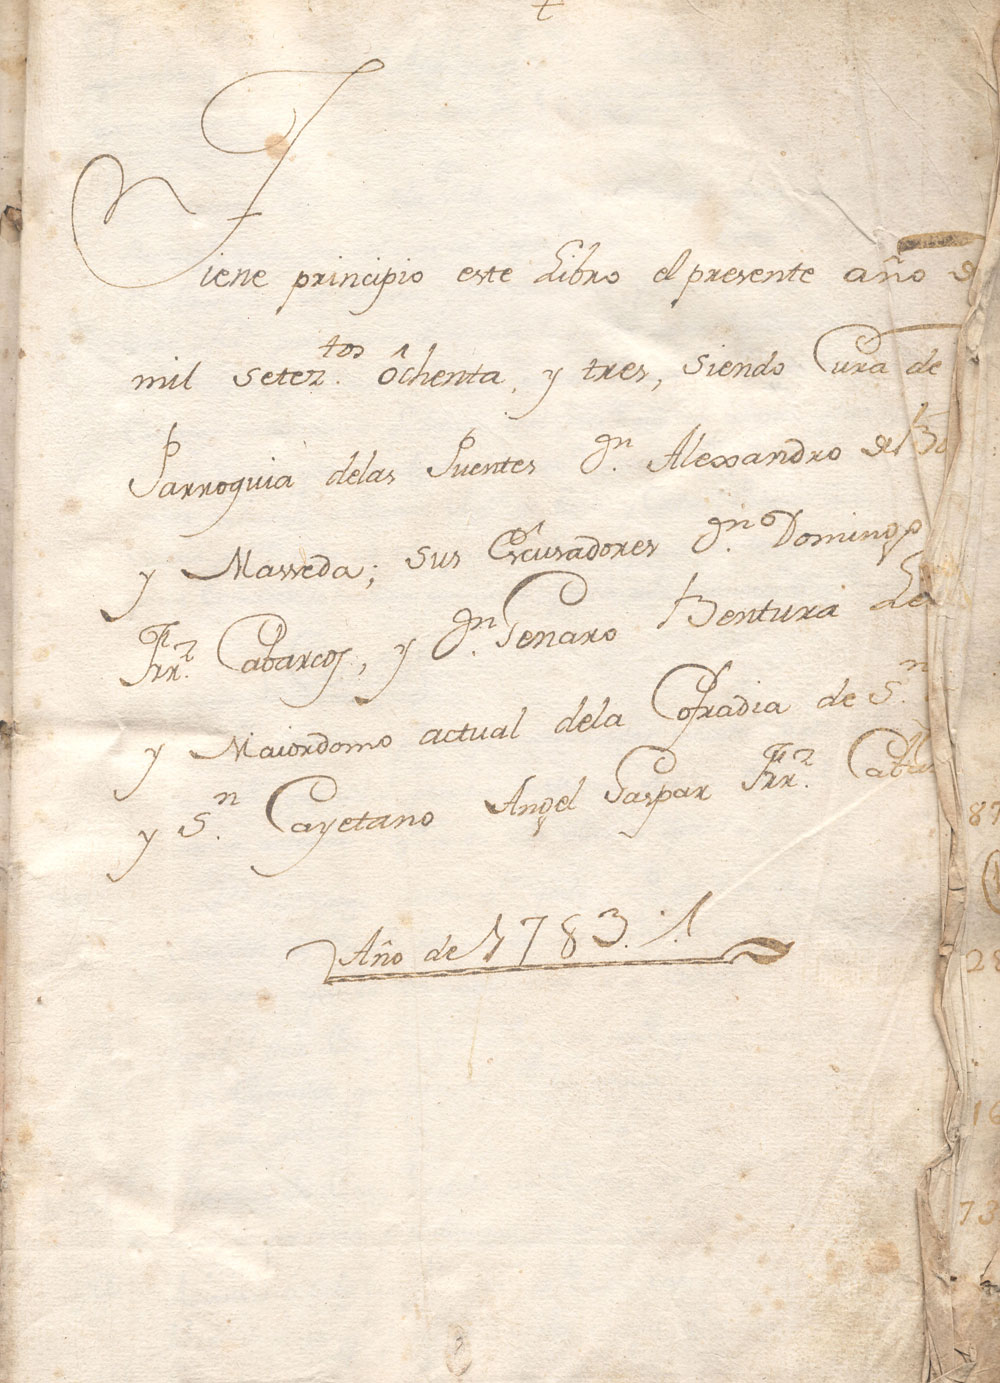 Tiene principio este Libro el presente año de
mil setez.tos ôchenta, y tres, siendo Cura de
Parroquia delas Puentes Dn. Alexandro del
y Masseda; sus Escusadores Dn. Domingo
Frrz. Cabarcos, y Dn. Genaro Bentura
y Maiordomo actual dela Cofradia de Sn.
y Sn. Cayetano Angel Gaspar Frrz.
Año de 1783.
87
28
16
73